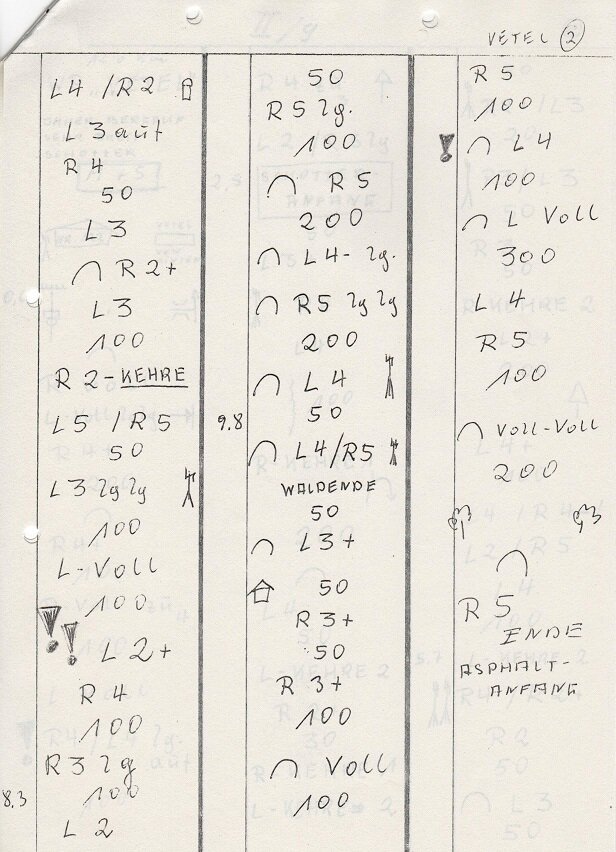 VETEL 2
L4 / R2
L3 aūf
R4
50
L3
R2+
L3
100
R 2 - KEHRE
L5 / R5
50
L3 lg lg
100
L-Voll
100
!! L2+
R4
100
R3 lg
8.3 100
L 2
50
R5 lg.
100
R5
200
L4- lg.
R5 lg lg
200
L4
9.8 50
L4/R5
WALDENDE
50
L3+
50
R3+
50
R3+
100
Voll
100
R5
100
! L4
100
L Voll
300
L4
R5
100
Voll-Voll
200
R5
ENDE
ASPHALT-
ANFANG